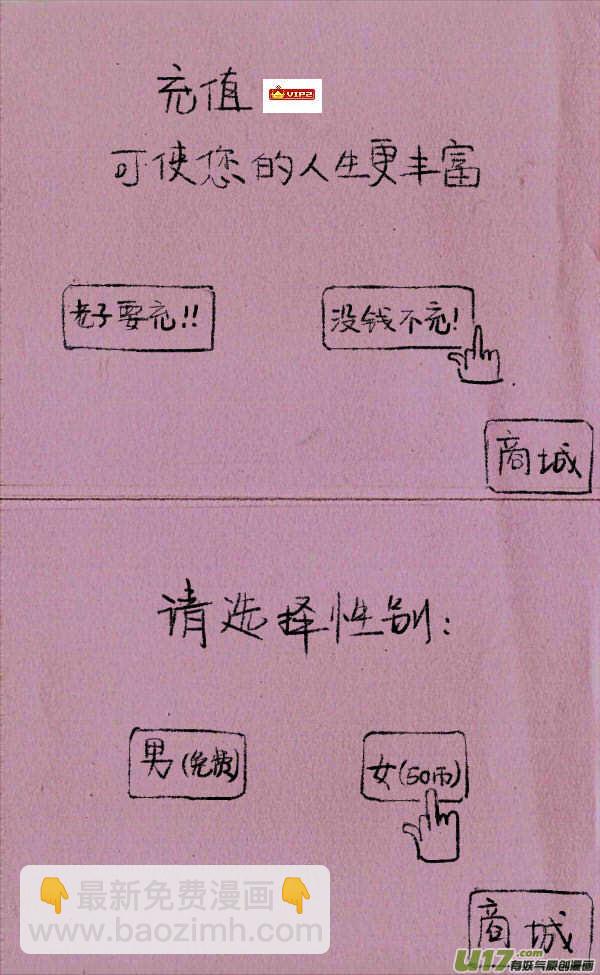 充值 VIP2
可使您的人生更丰富
老子要充!!
没钱不充!
商城
请选择性别:
男(免费)
女(50币)
商城
最新免费漫画
www.baozimh.com
U17.com
有妖气原创漫画